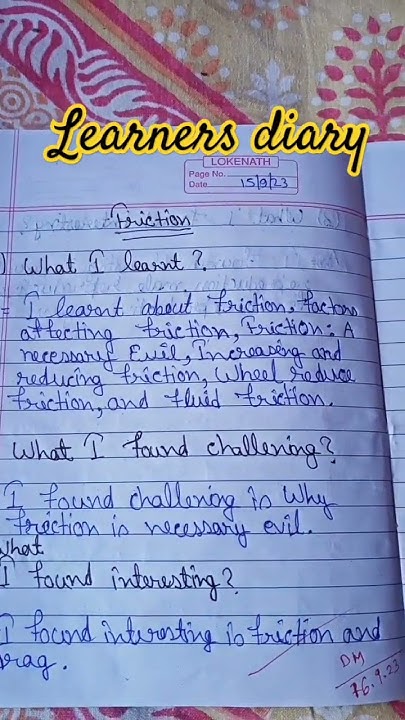 Learners diary
LOKENATH
Page No.
Date 15/9/23
Friction
) What I learnt?
= I learnt about friction, factors
affecting friction, Friction: A
necessary Evil, Increaseing and
reducing friction, Wheel reduce
friction, and fluid friction.
What I found challening?
I found challening is Why
friction is necessary evil.
What
I found interesting?
I found interesting is friction and
drag.
DM
16.9.23